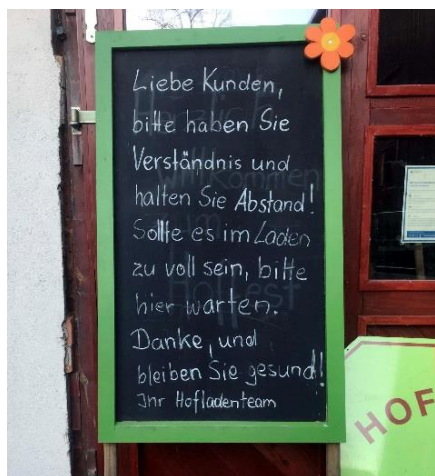 Liebe Kunden,
bitte haben Sie
Verständnis und
halten Sie Abstand!
Sollte es im Laden
zu voll sein, bitte
hier warten.
Danke, und
bleiben Sie gesund!
Ihr Hofladenteam
HOF